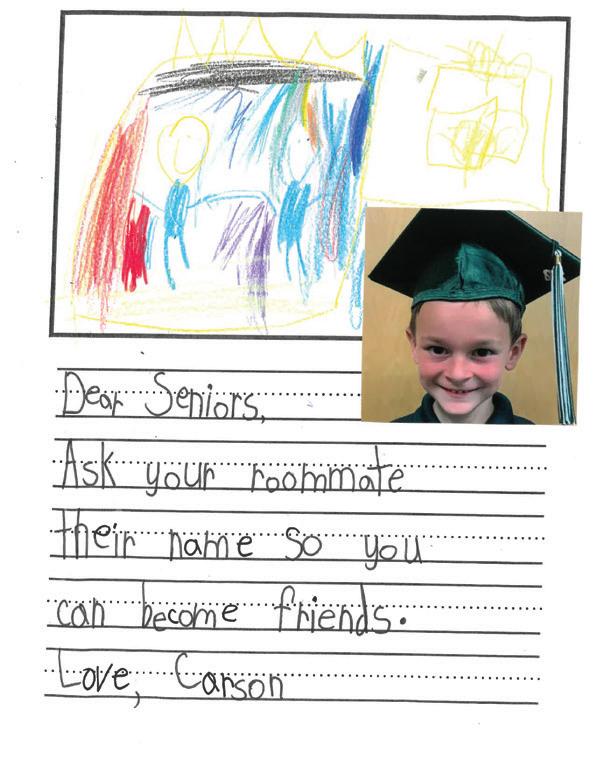 Dear Seniors,
Ask your roommate
their name so you
can become friends.
Love, Carson